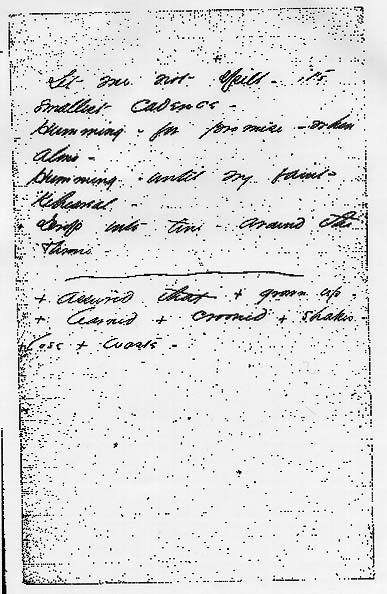 Let me not spill - it's
smallest cadence -
Humming - for promise - when
alone -
Humming - until my faint
Rehearsal -
Drop into tune - around the
Throne -
+ Acquired that + grown up -
+ learned + crooned + shakes